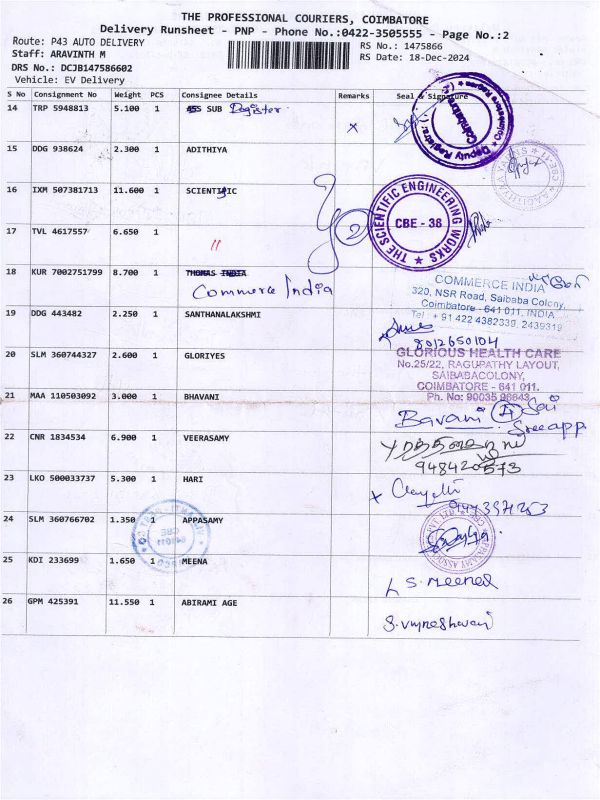 THE PROFESSIONAL COURIERS, COIMBATORE
Delivery Runsheet - PNP - Phone No.:0422-3505555 - Page No.:2
Route: P43 AUTO DELIVERY
RS No.: 1475866
Staff: ARAVINTH M
RS Date: 18-Dec-2024
DRS No.: DCJB147586602
Vehicle: EV Delivery
S No Consignment No Weight PCS Consignee Details Remarks Seal & Signature
14 TRP 5948813 5.100 1 SUB Register
15 DDG 938624 2.300 1 ADITHIYA
16 IXM 507381713 11.600 1 SCIENTIFIC
THE SCIENTIFIC ENGINEERING WORKS
CBE - 38
17 TVL 4617557 6.650 1 "
18 KUR 7002751799 8.700 1 THOMAS INDIA
Commerce India
COMMERCE INDIA
320, NSR Road, Saibaba Colony,
Coimbatore - 641 011, INDIA
Tel : + 91 422 4382339, 2439319
19 DDG 443482 2.250 1 SANTHANALAKSHMI
8012650104
20 SLM 360744327 2.600 1 GLORIYES
GLORIOUS HEALTH CARE
No.25/22, RAGUPATHY LAYOUT,
SAIBABACOLONY,
COIMBATORE - 641 011.
Ph. No: 90035 96643
21 MAA 110503092 3.000 1 BHAVANI
Bavani Sai
22 CNR 1834534 6.900 1 VEERASAMY
23 LKO 500033737 5.300 1 HARI
24 SLM 360766702 1.350 1 APPASAMY
25 KDI 233699 1.650 1 MEENA
S. Meena
26 GPM 425391 11.550 1 ABIRAMI AGE